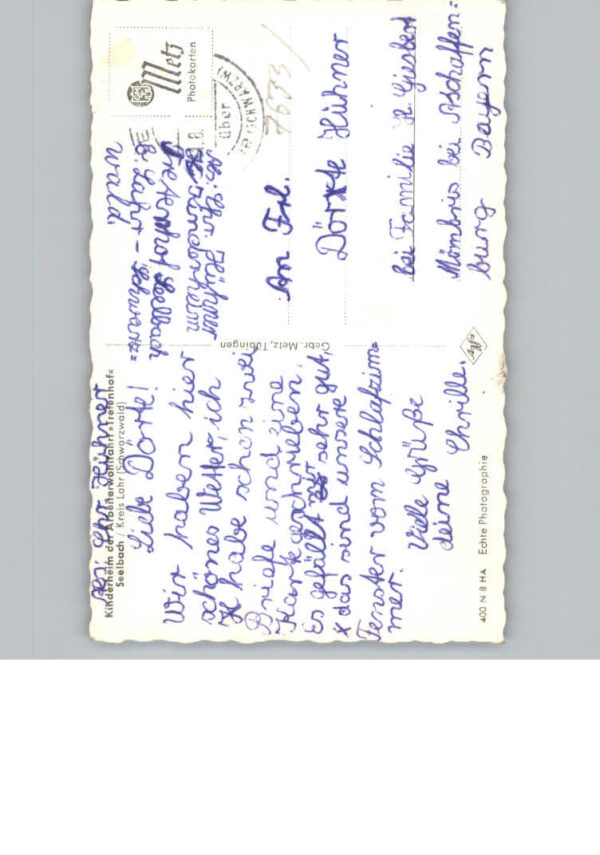 Kinderheim der Arbeiterwohlfahrt »Tretenhof«
Seelbach / Kreis Lahr (Schwarzwald)
Liebe Dörte!
Wir haben hier
schönes Wetter, ich
habe schon zwei
Briefe und eine
Karte geschrieben.
Es gefällt mir sehr gut,
x das sind unsere
Fenster vom Schlafzim=
mer.
Viele Grüße
deine Chrille.
400 N 8 HA Echte Photographie
Gebr. Metz, Tübingen
Agfa
Metz
Photokarten
über
(SCHWARZW)
7633
Abs. Chr. Hühner
Kinderheim
Tretenhof Seelbach
b. Lahr - Schwarz=
wald.
An Frl.
Dörte Hühner
bei Familie H. Giesbert
Mömbris bei Aschaffen=
burg Bayern